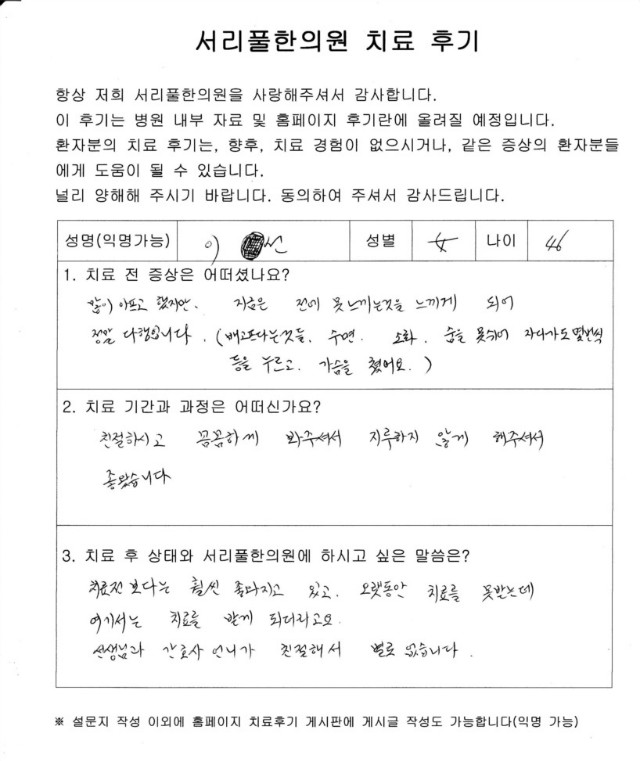 서리풀한의원 치료 후기
항상 저희 서리풀한의원을 사랑해주셔서 감사합니다.
이 후기는 병원 내부 자료 및 홈페이지 후기란에 올려질 예정입니다.
환자분의 치료 후기는, 향후, 치료 경험이 없으시거나, 같은 증상의 환자분들
에게 도움이 될 수 있습니다.
널리 양해해 주시기 바랍니다. 동의하여 주셔서 감사드립니다.
성명(익명가능) 이 선 성별 女 나이 46
1. 치료 전 증상은 어떠셨나요?
많이 아프고 했지만. 지금은 전에 못느끼는것을 느끼게 되어
정말 다행입니다. (배고프다는것들. 수면. 소화. 숨을 못쉬어 자다가도 몇번씩
등을 누르고. 가슴을 쳤어요.)
2. 치료 기간과 과정은 어떠신가요?
친절하시고 꼼꼼하게 봐주셔서 지루하지 않게 해주셔서
좋았습니다
3. 치료 후 상태와 서리풀한의원에 하시고 싶은 말씀은?
치료전 보다는 훨씬 좋아지고 있고. 오랫동안 치료를 못받는데
여기서는 치료를 받게 되더라고요.
선생님과 간호사 언니가 친절해서 별로 없습니다.
※ 설문지 작성 이외에 홈페이지 치료후기 게시판에 게시글 작성도 가능합니다(익명 가능)